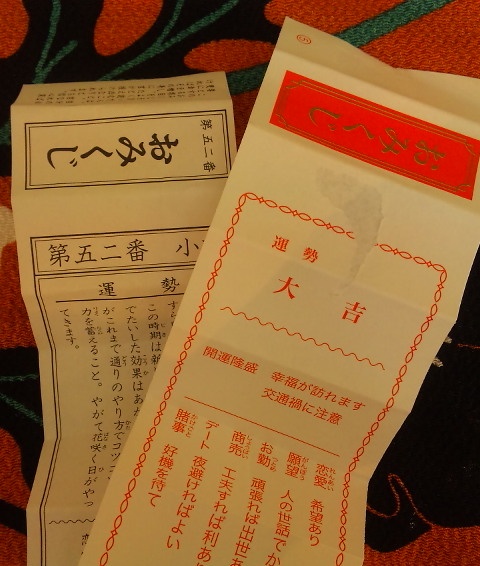 第五二番
おみくじ
第五二番 小
運勢
この時期は新
てたいした効果はあ
がこれまで通りのやり方でコツコ
力を蓄えること。やがて花咲く日がやっ
てきます。
おみくじ
運勢
大吉
開運隆盛 幸福が訪れます
交通禍に注意
恋愛 希望あり
願望 人の世話でか
お勤 頑張れば出世
商売 工夫すれば利あ
デート 夜避ければよい
賭事 好機を待て